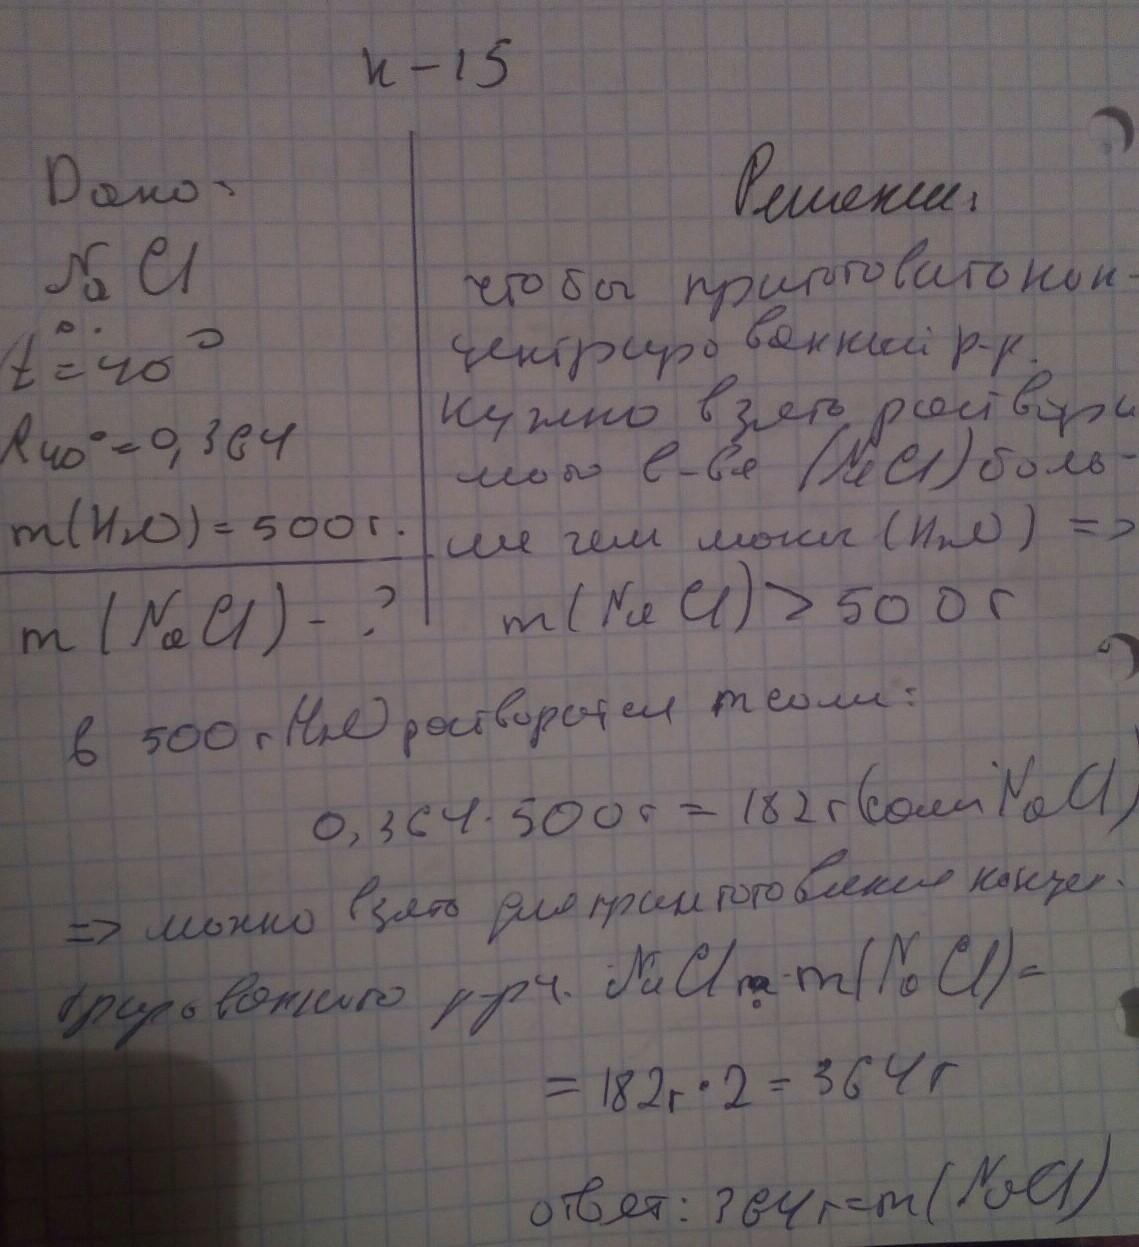 н-15
Дано:
NaCl
t° = 40°
R40° = 0,364
m(H2O) = 500г.
m(NaCl) - ?
Решение:
чтобы приготовить кон-
центрированный р-р.
нужно взять раствори
мого в-ва (NaCl) боль-
ше чем массы (H2O) =>
m(NaCl) > 500г
в 500г (H2O) растворятся m соли:
0,364 · 500г = 182г (соли NaCl)
=> можно взять для приготовления концен.
трированного р-ра. NaCl m(NaCl) =
= 182г · 2 = 364г
ответ: 364г = m(NaCl)